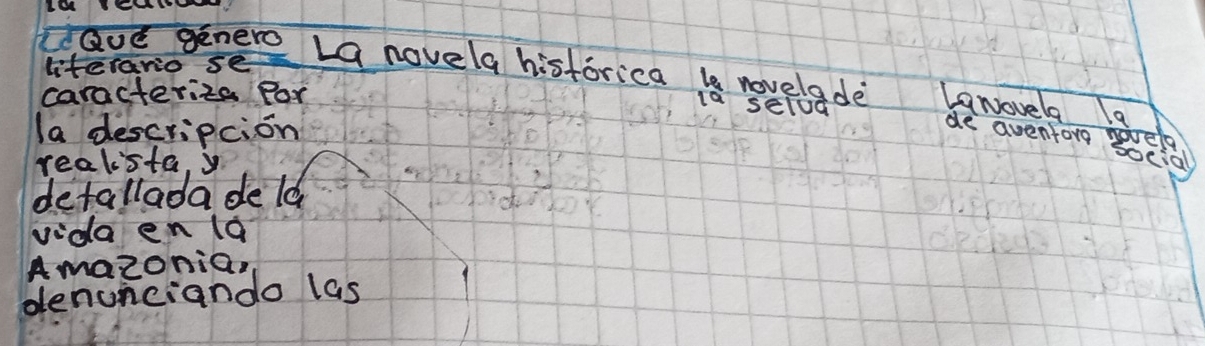 ¿Qué género
literario se
caracteriza por
la descripción
realista y
detallada de la
vida en la
Amazonia,
denunciando las
La novela histórica
la novela de
la selva
La novela
de aventora
la
novela
social